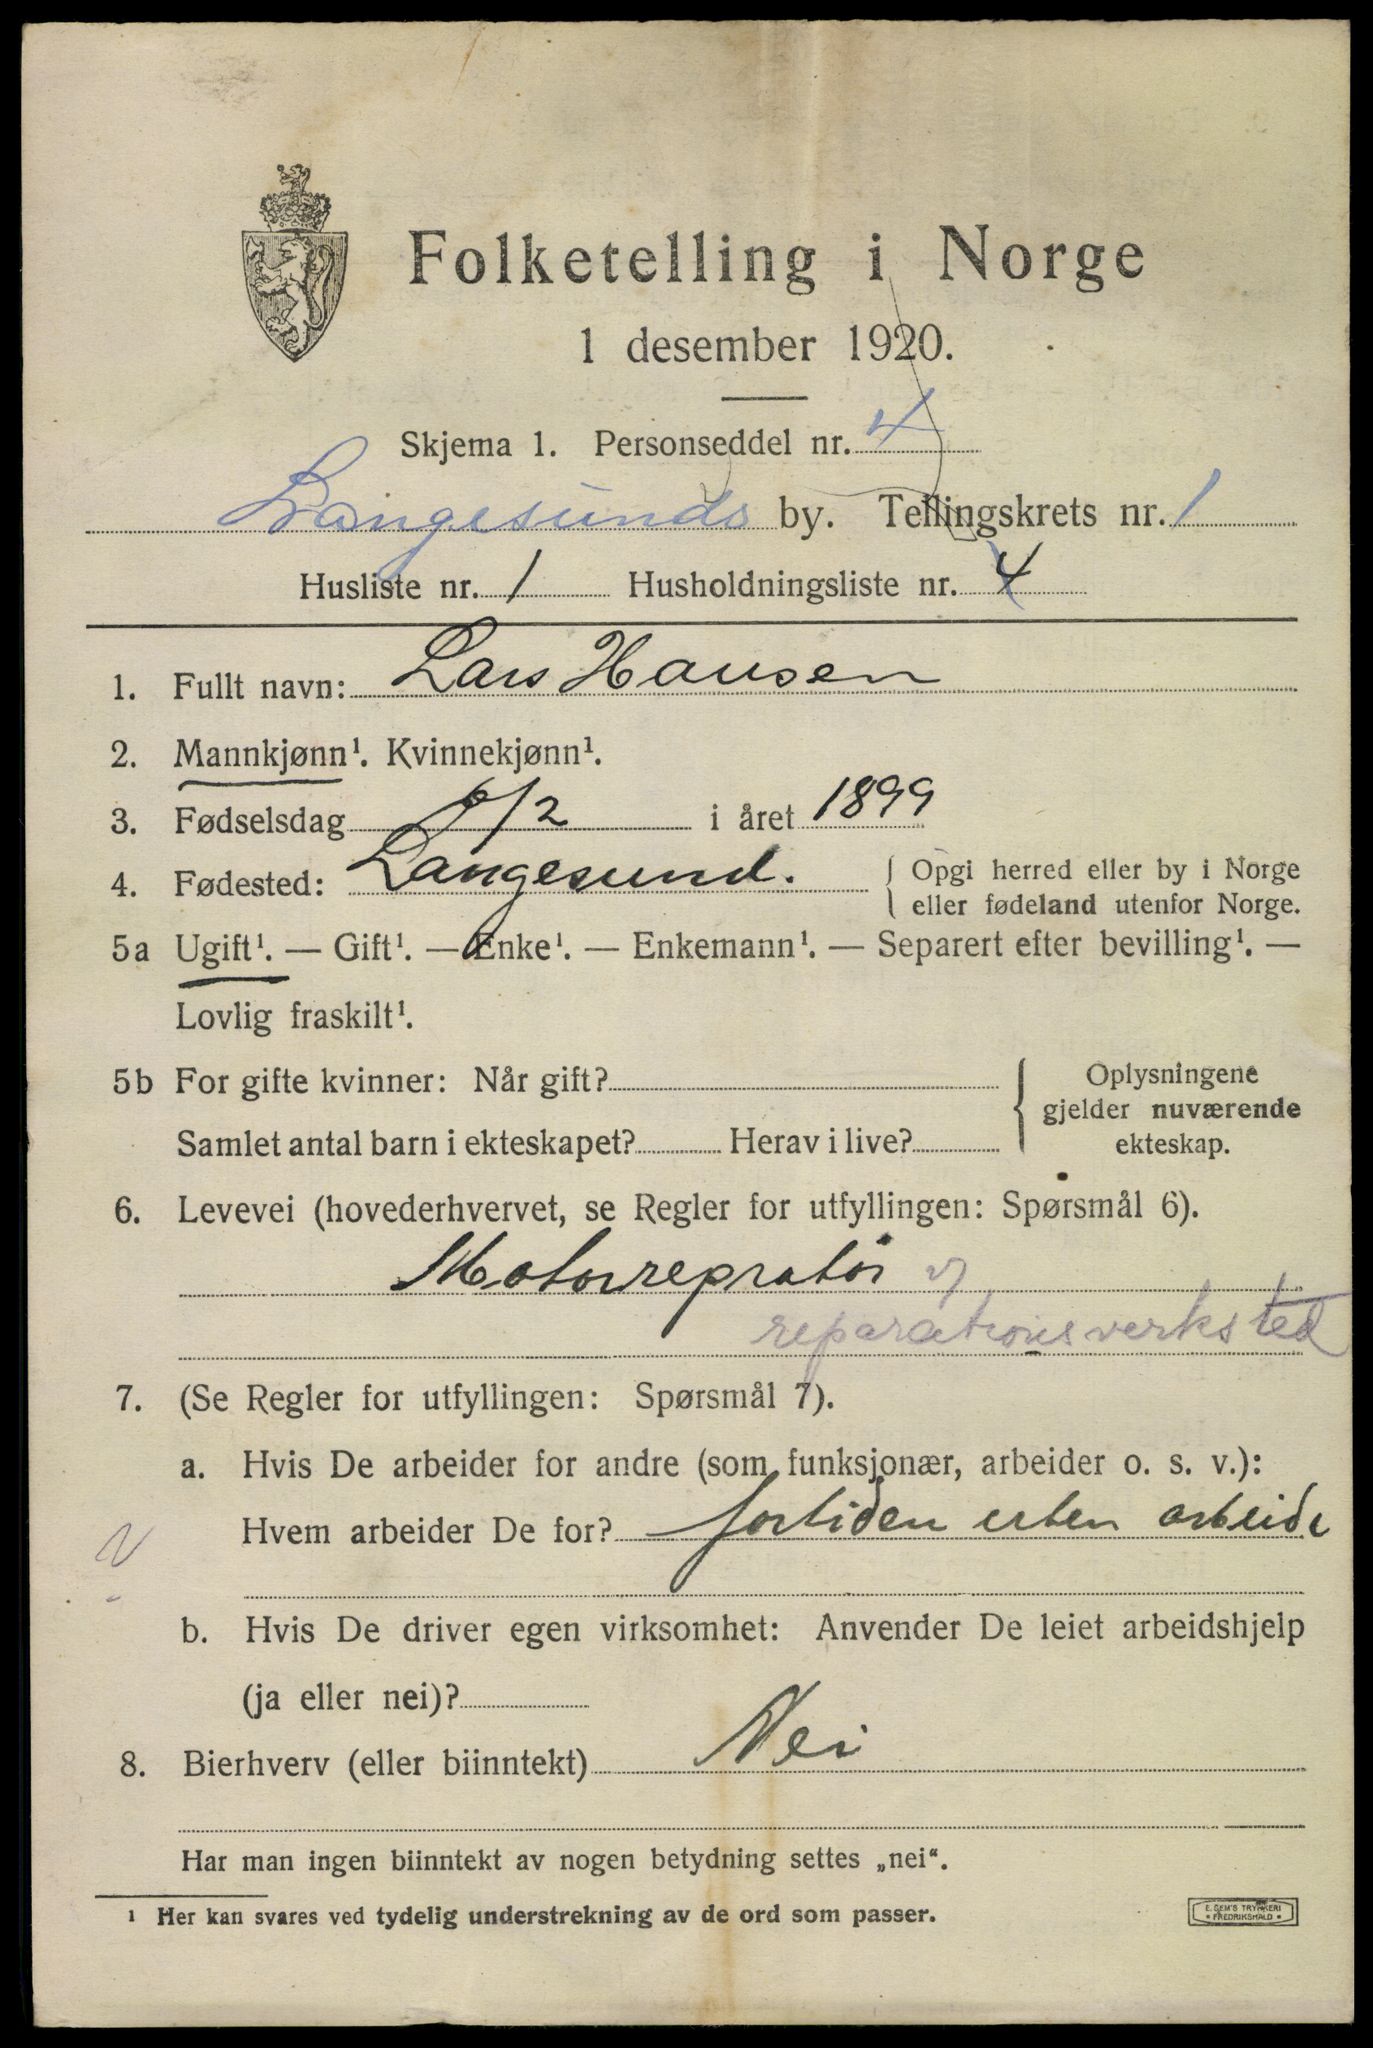 Folketelling i Norge
1 desember 1920.
Skjema 1. Personseddel nr. 4
Langesunds by. Tellingskrets nr. 1
Husliste nr. 1 Husholdningsliste nr. 4
1. Fullt navn: Lars Hansen
2. Mannkjønn¹. Kvinnekjønn¹.
3. Fødselsdag /2 i året 1899
4. Fødested: Langesund. { Opgi herred eller by i Norge
eller fødeland utenfor Norge.
5a Ugift¹. — Gift¹. — Enke¹. — Enkemann¹. — Separert efter bevilling¹. —
Lovlig fraskilt¹.
5b For gifte kvinner: Når gift? { Oplysningene
gjelder nuværende
Samlet antal barn i ekteskapet? Herav i live? ekteskap.
6. Levevei (hovederhvervet, se Regler for utfyllingen: Spørsmål 6).
Motorrepratør v/
reparationsverksted
7. (Se Regler for utfyllingen: Spørsmål 7).
a. Hvis De arbeider for andre (som funksjonær, arbeider o. s. v.):
Hvem arbeider De for? fortiden uten arbeide
b. Hvis De driver egen virksomhet: Anvender De leiet arbeidshjelp
(ja eller nei)?
8. Bierhverv (eller biinntekt) Nei
Har man ingen biinntekt av nogen betydning settes „nei“.
¹ Her kan svares ved tydelig understrekning av de ord som passer.
E. SEM'S TRYKKERI
• FREDRIKSHALD •